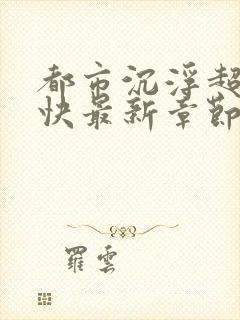 都市沉浮超
快最新章節
羅雲